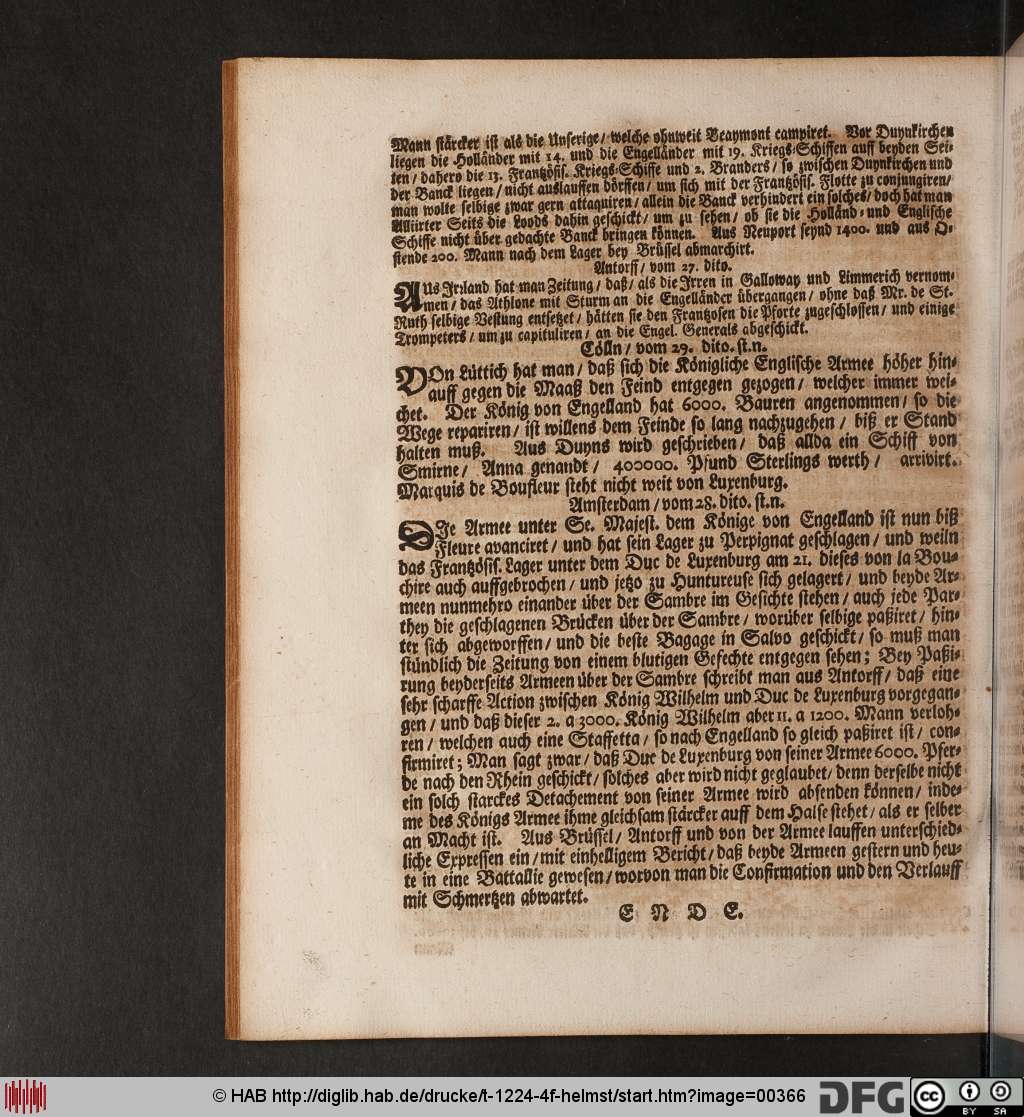 Mann stärcker ist als die Unserige/ welche ohnweit Beaymont campiret. Vor Duynkirchen
liegen die Holländer mit 14. und die Engelländer mit 19. Kriegs-Schiffen auff beyden Sei-
ten/ dahero die 13. Frantzösis. Kriegs-Schiffe und 2. Branders/ so zwischen Duynkirchen und
der Banck liegen/ nicht auslauffen dörffen/ um sich mit der Frantzösis. Flotte zu conjungiren/
man wolte selbige zwar gern attaquiren/ allein die Banck verhindert ein solches/ doch hat man
Alliirter Seits die Loods dahin geschickt/ um zu sehen/ ob sie die Holländ- und Englische
Schiffe nicht über gedachte Banck bringen können. Aus Neuport seynd 1400. und aus O-
stende 200. Mann nach dem Lager bey Brüssel abmarchirt.
Antorff/ vom 27. dito.
AUs Irrland hat man Zeitung/ daß/ als die Irren in Galloway und Limmerich vernom-
men/ das Athlone mit Sturm an die Engelländer übergangen/ ohne daß Mr. de St.
Ruth selbige Vestung entsetzet/ hätten sie den Frantzosen die Pforte zugeschlossen/ und einige
Trompeters/ um zu capituliren/ an die Engel. Generals abgeschickt.
Cölln/ vom 29. dito. st. n.
VOn Lüttich hat man/ daß sich die Königliche Englische Armee höher hin-
auff gegen die Maaß den Feind entgegen gezogen/ welcher immer wei-
chet. Der König von Engelland hat 6000. Bauren angenommen/ so die
Wege repariren/ ist willens dem Feinde so lang nachzugehen/ biß er Stand
halten muß. Aus Duyns wird geschrieben/ daß allda ein Schiff von
Smirne/ Anna genandt/ 400000. Pfund Sterlings werth/ arrivirt.
Marquis de Boufleur steht nicht weit von Luxenburg.
Amsterdam/ vom 28. dito. st. n.
DIe Armee unter Se. Majest. dem Könige von Engelland ist nun biß
Fleure avanciret/ und hat sein Lager zu Perpignat geschlagen/ und weiln
das Frantzösis. Lager unter dem Duc de Luxenburg am 21. dieses von la Bou-
chire auch auffgebrochen/ und jetzo zu Huntureuse sich gelagert/ und beyde Ar-
meen nunmehro einander über der Sambre im Gesichte stehen/ auch jede Par-
they die geschlagenen Brücken über der Sambre/ worüber selbige paßiret/ hin-
ter sich abgeworffen/ und die beste Bagage in Salvo geschickt/ so muß man
stündlich die Zeitung von einem blutigen Gefechte entgegen sehen; Bey Paßi-
rung beyderseits Armeen über der Sambre schreibt man aus Antorff/ daß eine
sehr scharffe Action zwischen König Wilhelm und Duc de Luxenburg vorgegan-
gen/ und daß dieser 2. a 3000. König Wilhelm aber 11. a 1200. Mann verloh-
ren/ welchen auch eine Staffetta/ so nach Engelland so gleich paßiret ist/ con-
firmiret; Man sagt zwar/ daß Duc de Luxenburg von seiner Armee 6000. Pfer-
de nach den Rhein geschickt/ solches aber wird nicht geglaubet/ denn derselbe nicht
ein solch starckes Detachement von seiner Armee wird absenden können/ inde-
me des Königs Armee ihme gleichsam stärcker auff dem Halse stehet/ als er selber
an Macht ist. Aus Brüssel/ Antorff und von der Armee lauffen unterschied-
liche Expressen ein/ mit einhelligem Bericht/ daß beyde Armeen gestern und heu-
te in eine Battallie gewesen/ worvon man die Confirmation und den Verlauff
mit Schmertzen abwartet.
E N D E.
© HAB http://diglib.hab.de/drucke/t-1224-4f-helmst/start.htm?image=00366
DFG
cc BY SA